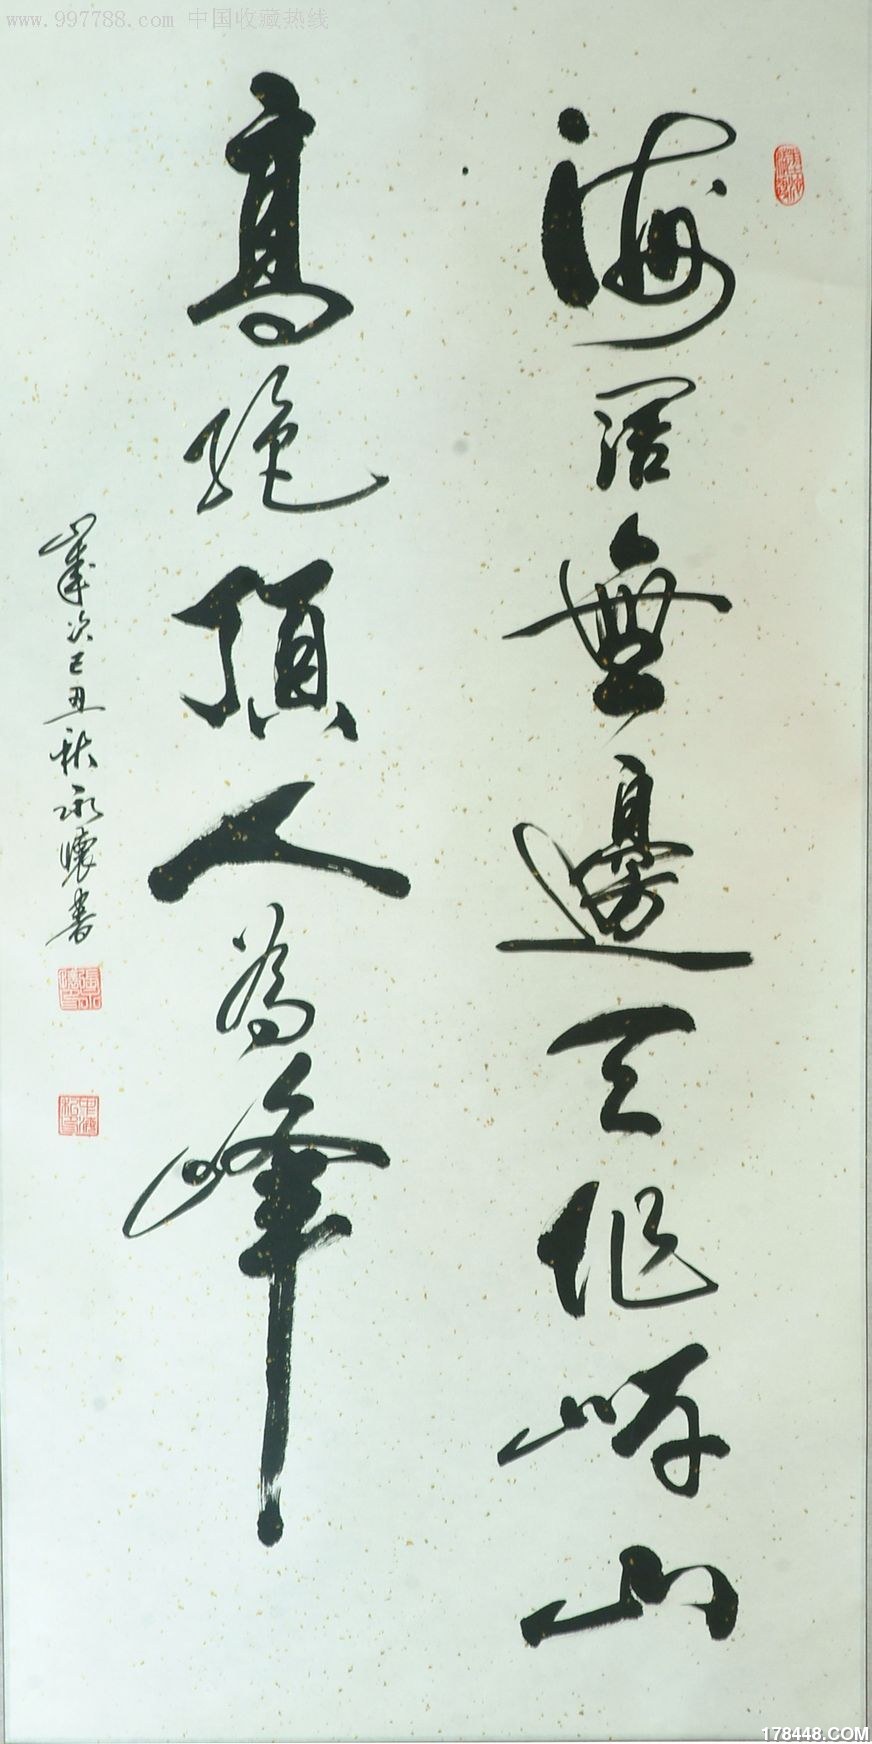 www.997788.com 中国收藏热线
海阔無邊天作岸山
高絶頂人為峰
歲次己丑秋永懷書
178448.COM